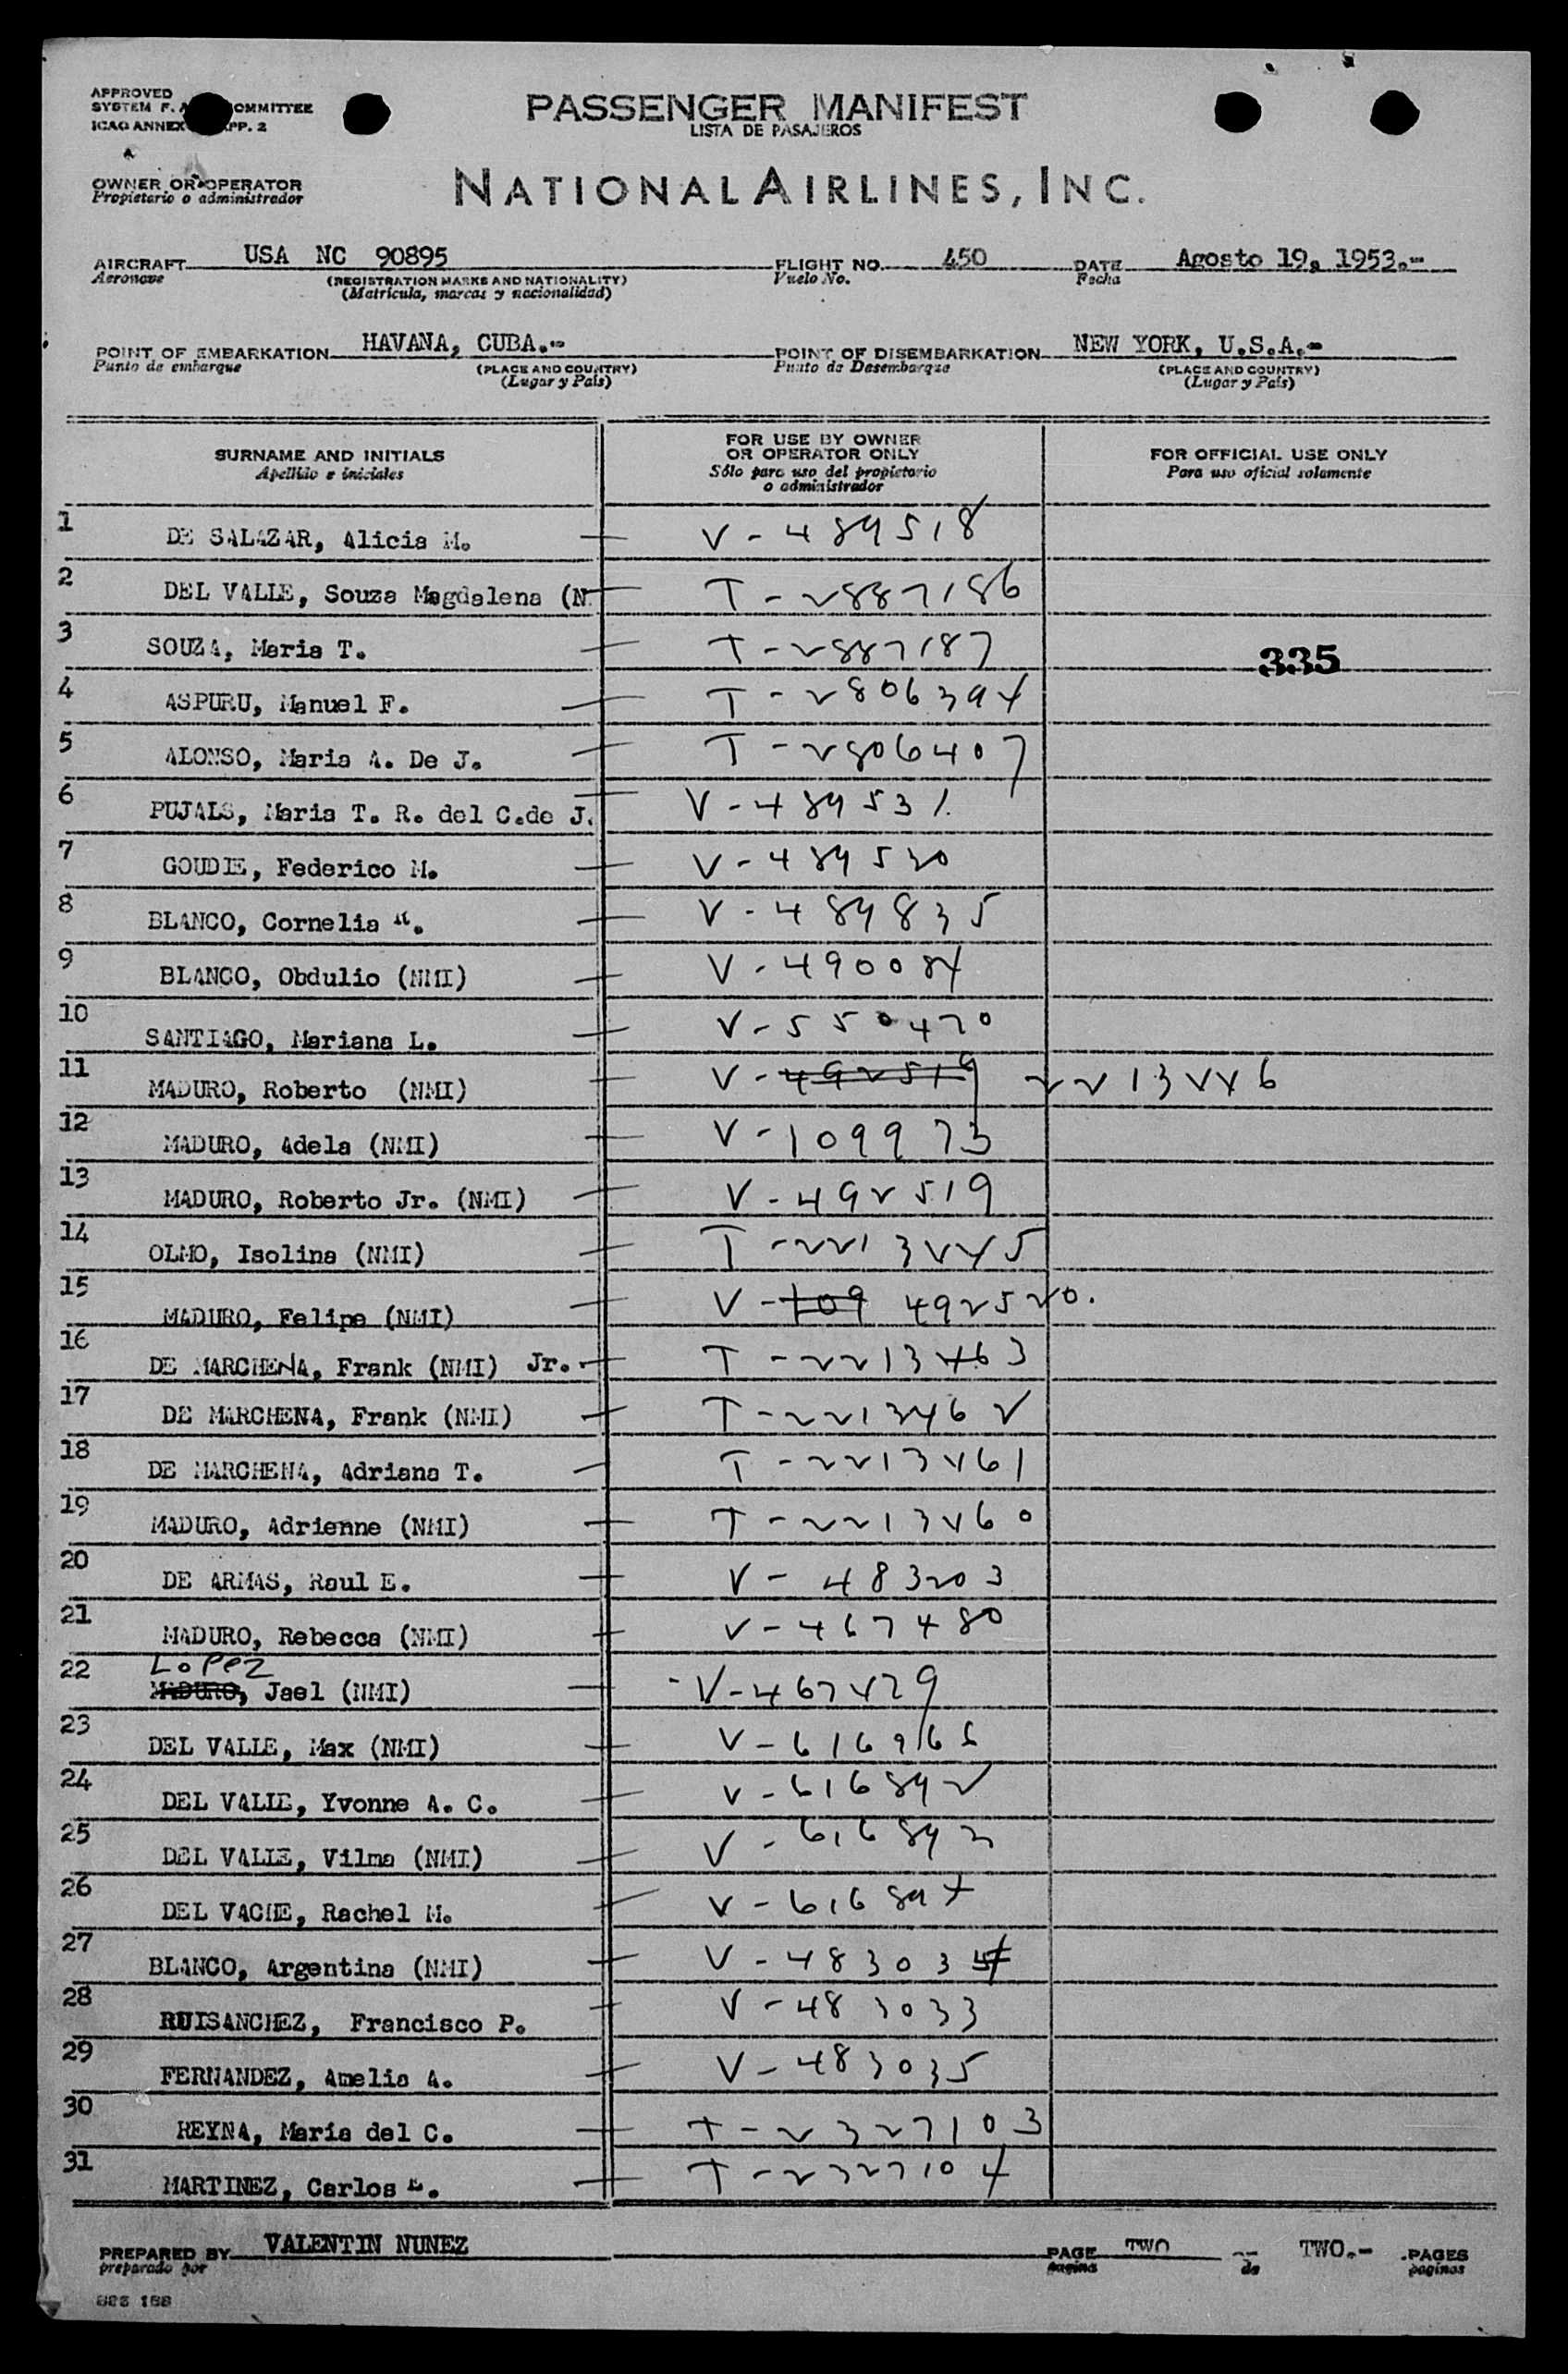 APPROVED
SYSTEM F. A. COMMITTEE
ICAO ANNEX APP. 2
PASSENGER MANIFEST
LISTA DE PASAJEROS
OWNER OR OPERATOR
Propietario o administrador
NATIONAL AIRLINES, INC.
AIRCRAFT USA NC 90895 FLIGHT NO. 450 DATE Agosto 19, 1953.-
Aeronave (REGISTRATION MARKS AND NATIONALITY) Vuelo No. Fecha
(Matrícula, marcas y nacionalidad)
POINT OF EMBARKATION HAVANA, CUBA.- POINT OF DISEMBARKATION NEW YORK, U.S.A.-
Punto de embarque (PLACE AND COUNTRY) Punto de Desembarque (PLACE AND COUNTRY)
(Lugar y País) (Lugar y País)
SURNAME AND INITIALS FOR USE BY OWNER OR OPERATOR ONLY FOR OFFICIAL USE ONLY
Apellido e iniciales Sólo para uso del propietario o administrador Para uso oficial solamente
1 DE SALAZAR, Alicia M. V-489518
2 DEL VALLE, Souza Magdalena (N T-2887186
3 SOUZA, Maria T. T-2887187 335
4 ASPURU, Manuel F. T-2806394
5 ALONSO, Maria A. De J. T-2806407
6 PUJALS, Maria T. R. del C.de J. V-489531
7 GOUDIE, Federico M. V-489530
8 BLANCO, Cornelia V-489835
9 BLANCO, Obdulio (NMI) V-490084
10 SANTIAGO, Mariana L. V-550470
11 MADURO, Roberto (NMI) V-492519 2213446
12 MADURO, Adela (NMI) V-109973
13 MADURO, Roberto Jr. (NMI) V-492519
14 OLMO, Isolina (NMI) T-2213445
15 MADURO, Felipe (NMI) V-109 492520.
16 DE MARCHENA, Frank (NMI) Jr. T-2213463
17 DE MARCHENA, Frank (NMI) T-2213462
18 DE MARCHENA, Adriana T. T-2213461
19 MADURO, Adrienne (NMI) T-2213460
20 DE ARMAS, Raul E. V-483203
21 MADURO, Rebecca (NMI) V-467480
Lopez
22 MADURO, Jael (NMI) -V-467479
23 DEL VALLE, Max (NMI)
24 DEL VALLE, Yvonne A. C. V-616892
25 DEL VALLE, Vilma (NMI) V-616893
26 DEL VACHE, Rachel M. V-616894
27 BLANCO, Argentina (NMI) V-483034
28 RUISANCHEZ, Francisco P. V-483033
29 FERNANDEZ, Amelia A. V-483035
30 REYNA, Maria del C. T-2327103
31 MARTINEZ, Carlos T-2327104
PREPARED BY VALENTIN NUNEZ PAGE TWO TWO.- PAGES
preparado por pagina de paginas